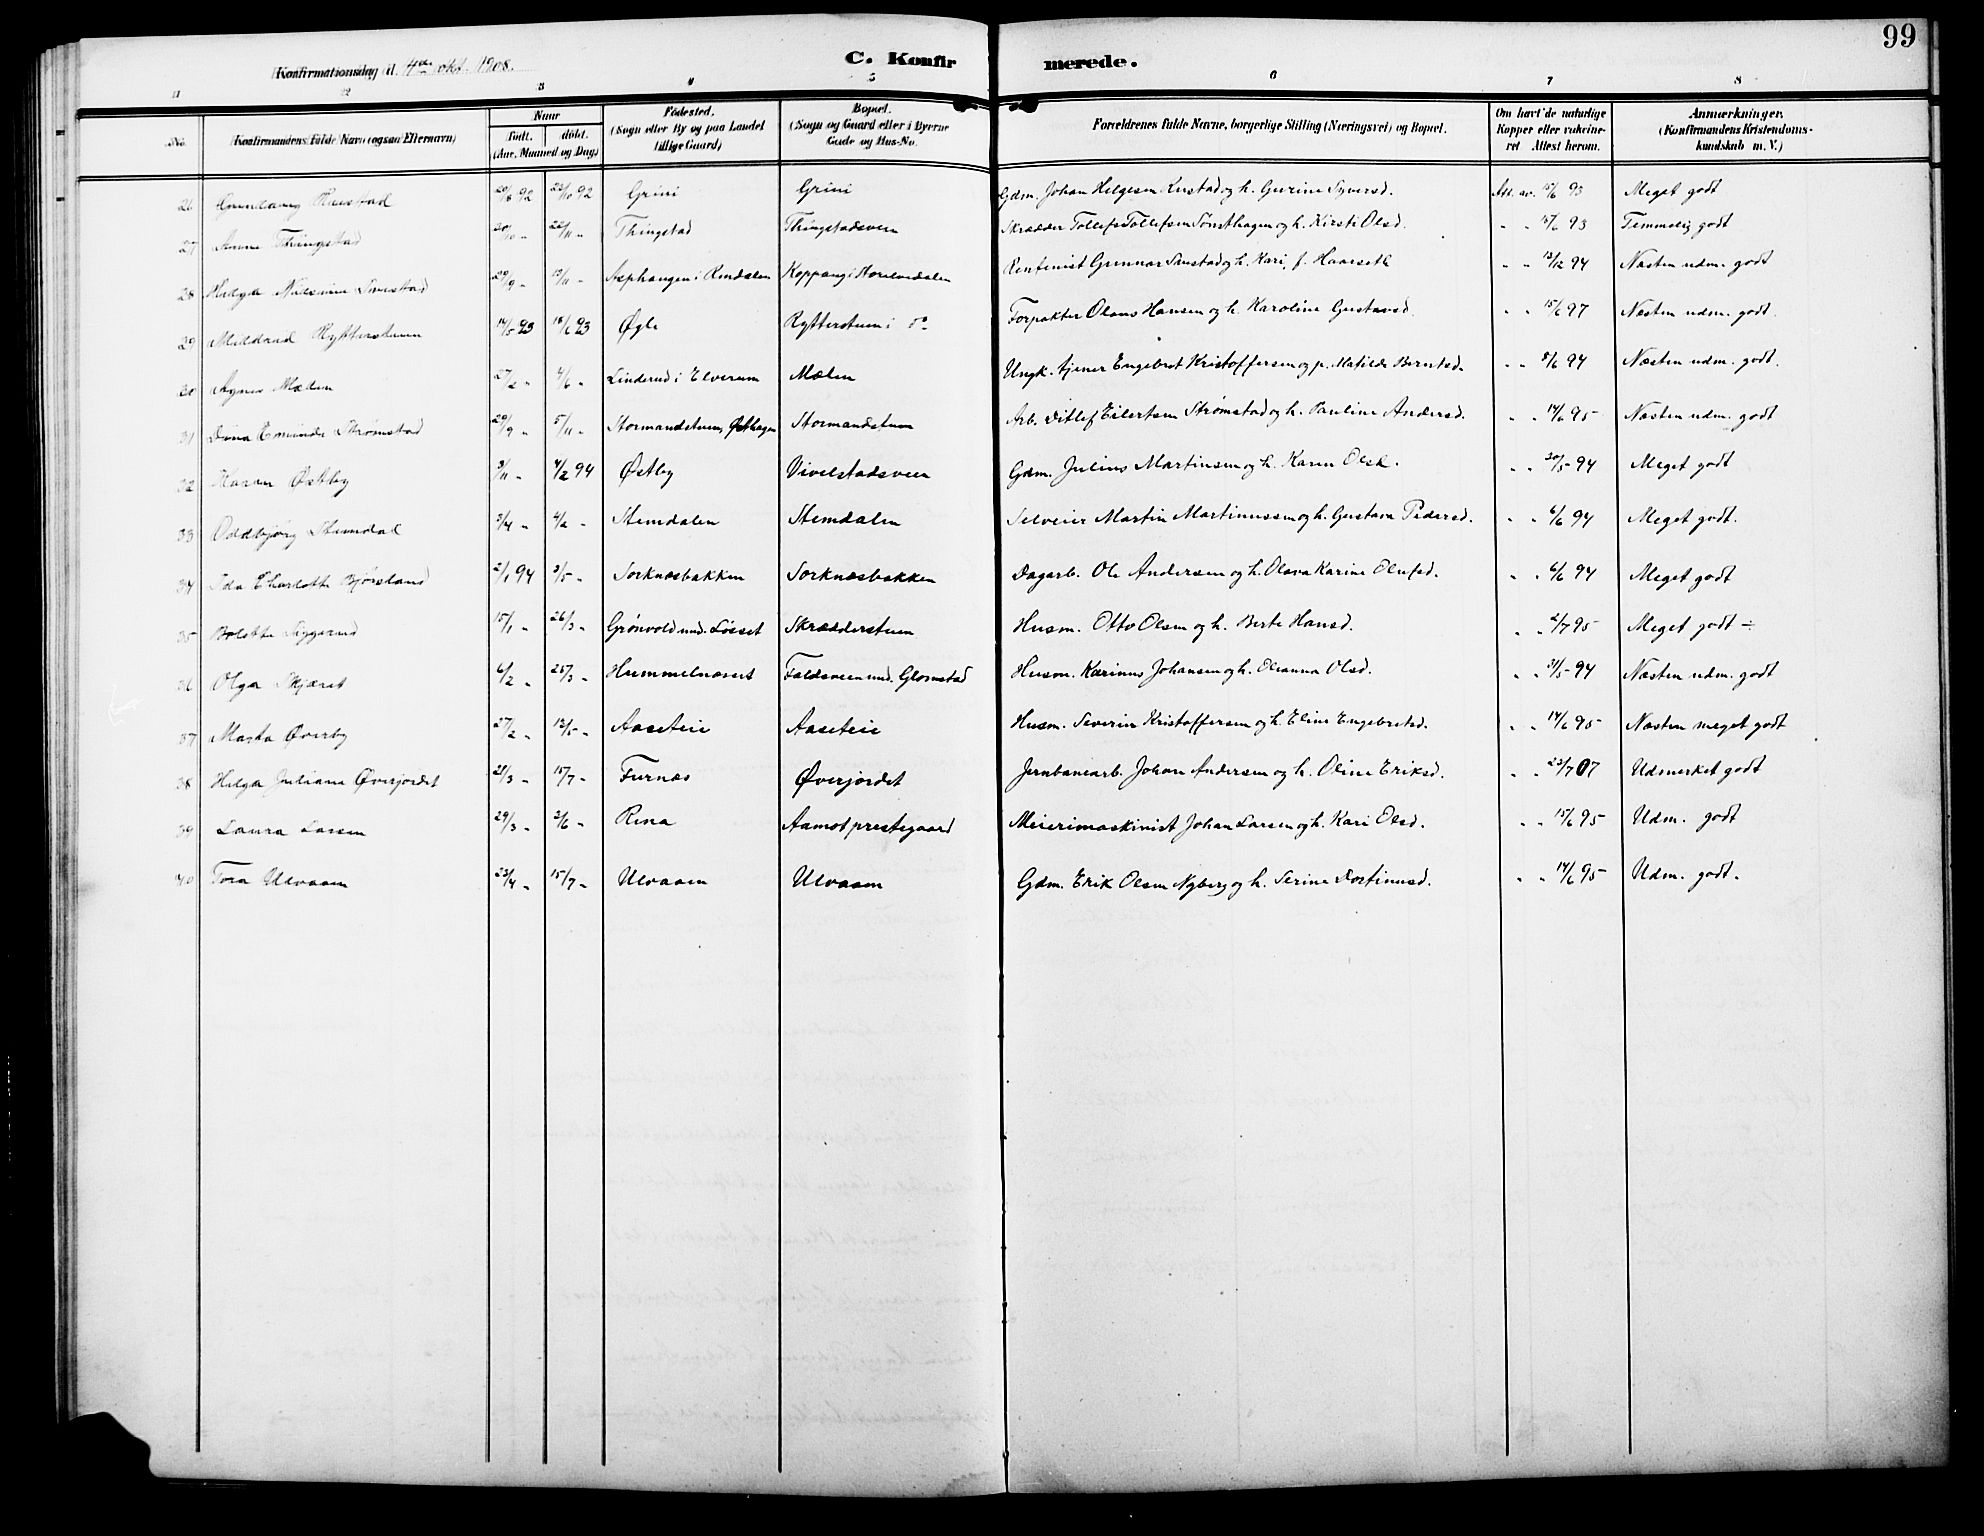 99
C. Konfirmerede.
Konfirmationsdag d. 4de okt. 1908.
1 2 3 4 5 6 7 8
No. Konfirmandens fulde Navn (ogsaa Efternavn) Naar født. døbt. (Aar, Maaned og Dag) Fødested. (Sogn eller By og paa Landet tillige Gaard) Bopæl. (Sogn og Gaard eller i Byerne Gade og Hus-No. Forældrenes fulde Navne, borgerlige Stilling (Næringsvei) og Bopæl. Om havt de naturlige Kopper eller vakcineret Attest herom. Anmærkninger. (Konfirmandens Kristendomskundskab m. V.)
26 Gunlaug Rustad 20/8 92 23/10 92 Grini Grini Gdm. Johan Helgesen Rustad og h. Gurine Syversd. Att. av. 15/6 93 Meget godt
27 Anne Thingstad 20/10 „ 22/11 „ Thingstad Thingstadsveen Skrædder Tollef Tollefsen Sønsthagen og h. Kirsti Olsd. „ „ 15/6 93 Temmelig godt
28 Helga 29/9 „ 13/11 „ Koppang i Storelvedalen Gunnar og h. Kari, f. Haarseth „ „ 13/12 94 Næsten udm. godt
29 Mildrid Rytterstuen 14/5 93 18/6 93 Øgle Rytterstuen i do Forpakter Olaus Hansen og h. Karoline Gustavsd. „ „ 15/6 97 Næsten udm. godt.
30 Agnes Mælen 27/2 „ 4/6 „ Linderud i Elverum Mælen Ungk. tjener Engebret Kristoffersen og p. Matilde Berntsd. „ „ 8/6 94 Næsten udm. godt.
31 Dina Strømstad 29/9 „ 5/11 „ Stormandstuen, Østhagen Stormandstuen Arb. Ditlef Eilertsen Strømstad og h. Pauline Andersd. „ „ 14/6 95 Næsten udm. godt
32 Karen Østby 3/11 „ 4/2 94 Østby Vivelstadsveen Gdm. Julius Martinsen og h. Karen Olsd. „ „ 30/5 94 Meget godt
33 Oddbjørg Stemdal 3/4 „ 4/2 „ Stemdalen Stemdalen Selveier Martin Martinussen og h. Gustava Pedersd. „ „ 6/6 94 Meget godt.
34 Ida Charlotte Bjørsland 2/1 94 3/5 „ Sorknæsbakken Sorknæsbakken Dagarb. Ole Andersen og h. Olava Karine Olufsd. „ „ 6/6 94 Meget godt
35 Bolette Siggerud 15/1 „ 26/3 „ Grønvold und. Løsset Skrædderstuen Husm. Otto Olsen og h. Berte Hansd. „ „ 2/7 95 Meget godt ÷
36 Olga Skjæret 6/2 „ 25/3 „ Hummelnæset Faldsveen und. Glomstad Husm. Karinus Johansen og h. Oleanna Olsd. „ „ 31/5 94 Næsten udm. godt
37 Marta Øverby 27/2 „ 13/5 „ Aaseteie Aaseteie Husm. Severin Kristoffersen og h. Eline Engebretsd. „ „ 14/6 95 Næsten meget godt
38 Helga Juliane Øverjordet 21/3 „ 15/7 „ Furnæs Øverjordet Jernbanearb. Johan Andersen og h. Oline Eriksd. „ „ 23/7 07 Udmerket godt
39 Laura Larsen 29/3 „ 3/6 „ Rena Aamot prestegaard Meierimaskinist Johan Larsen og h. Kari Olsd. „ „ 15/6 95 Udm. godt
40 Tora Ulvaaen 23/4 „ 15/7 „ Ulvaaen Ulvaaen Gdm. Erik Olsen Nyberg og h. Serine Tostinusd. „ „ 14/6 95 Udm. godt.